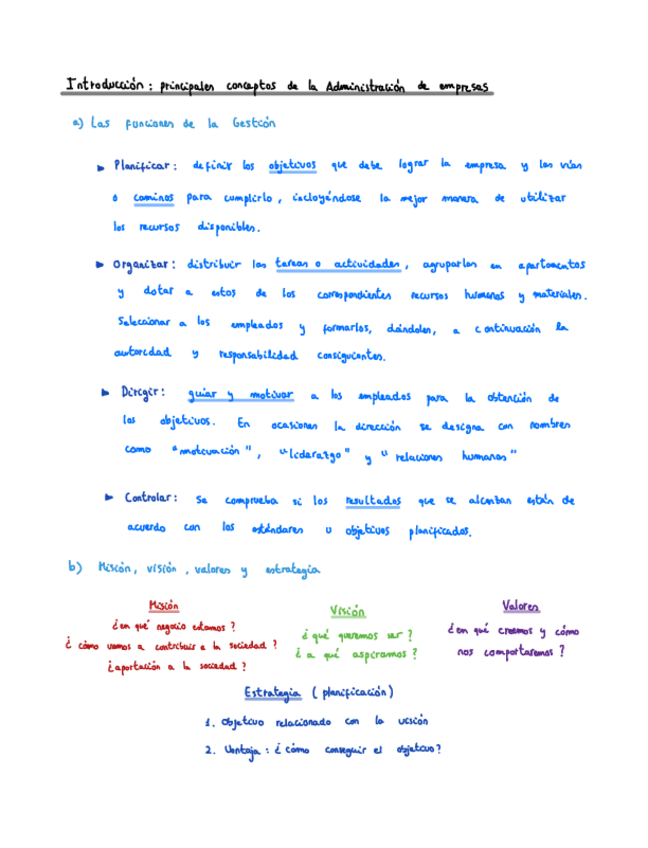 Introducción: principales conceptos de la Administración de empresas
a) Las funciones de la Gestión
► Planificar: definir los objetivos que debe lograr la empresa y las vías
o caminos para cumplirlo, incluyéndose la mejor manera de utilizar
los recursos disponibles.
► Organizar: distribuir las tareas o actividades, agruparlas en apartamentos
y dotar a estos de los correspondientes recursos humanos y materiales.
Seleccionar a los empleados y formarlos, dándoles, a continuación la
autoridad y responsabilidad consiguientes.
► Dirigir: guiar y motivar a los empleados para la obtención de
los objetivos. En ocasiones la dirección se designa con nombres
como "motivación", "liderazgo" y "relaciones humanas"
► Controlar: Se comprueba si los resultados que se alcanzan están de
acuerdo con los estándares u objetivos planificados.
b) Misión, visión, valores y estrategia
Misión
¿en qué negocio estamos?
¿cómo vamos a contribuir a la sociedad?
¿aportación a la sociedad?
Visión
¿qué queremos ser?
¿a qué aspiramos?
Valores
¿en qué creemos y cómo
nos comportaremos?
Estrategia (planificación)
1. Objetivo relacionado con la visión
2. Ventaja: ¿cómo conseguir el objetivo?